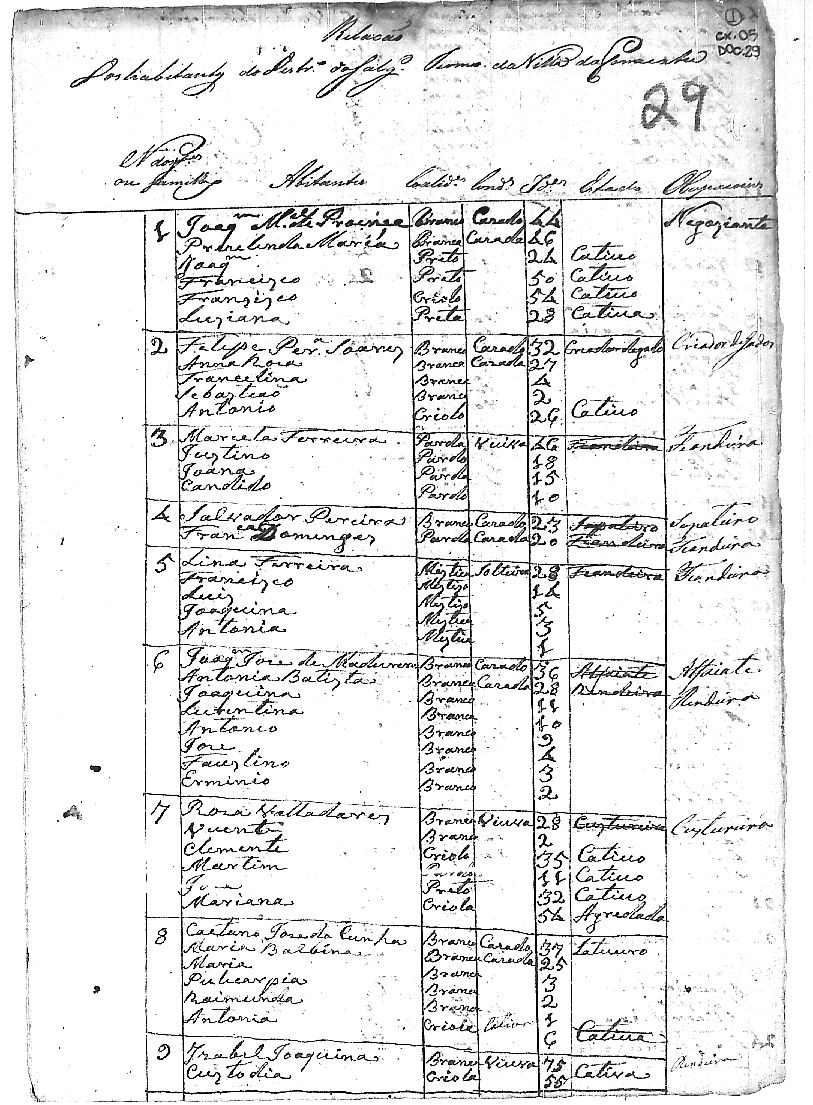 1
CX.05
DOC.29
Relacaõ
Dos habitantes do Destr.º do Salg.º Termo da Villa da
29
N dos
ou familia Abitantes Coalid.e Cond.m Id.e Estado Ocupacoins
1 Joaq.m M.el de Proença Branco Cazado 44 Negoziante
Prudenda Maria Branca Cazada 46
Joaq.m Preto 24 Cativo
Francisco Preto 50 Cativo
Franzisco Criolo 54 Cativo
Luziana Preta 28 Cativa
2 Felipe Per.ª Soares Branco Cazado 32 Criador de gado Criador de Gados
Anna Roza Branca Cazada 27
Francelina Branca 4
Sebastiaõ Branco 2
Antonio Criolo 26 Cativo
3 Marcela Ferreira Parda Veuva 46 Fiandeira Fiandeira
Justino Pardo 18
Joana Parda 15
Candido Pardo 10
4 Salvador Pereira Branco Cazado 23 Sapateiro Sapateiro
Fran.ca Domingues Parda Cazada 20 Fiandeira Fiandeira
5 Lina Ferreira Mestica Solteira 28 Fiandeira Fiandeira
Francisco Mestiso 14
Luis Mestiso 5
Joaquina Mestica 3
Antonia Mestica 1
6 Joaq.m Joze de Madurera Branco Cazado 36 Alfaiate Alfaiate
Antonia Batista Branca Cazada 28 Rendeira Rendeira
Joaquina Branca 11
Luventina Branca 10
Antonio Branco 9
Joze Branco 4
Faustino Branco 3
Erminio Branco 2
7 Roza Valladares Branca Veuva 28 Custureira Custureira
Vicente Branco 2
Clemente Criolo 35 Cativo
Martim Pardo 11 Cativo
Joze Preto 32 Cativo
Mariana Criola 54 Agredada
8 Caetano Joze da Cunha Branco Cazado 37 Latueiro
Maria Balbina Branca Cazada 25
Maria Branca 3
Pulicarpia Branca 2
Raimunda Branca 1
Antonia Criola 6 Cativa
9 Izabel Joaquina Branca Veuva 75 Rendeira
Custodia Criola 55 Cativa